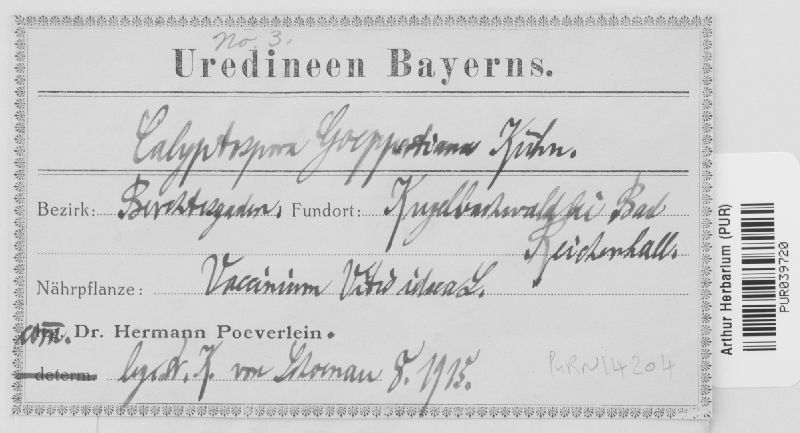 No. 3.
Uredineen Bayerns.
Calyptospora Goeppertiana Kühn.
Bezirk: Berchtesgaden. Fundort: Kugelbachwald bei Bad
Reichenhall.
Nährpflanze: Vaccinium Vitis idaea L.
com. Dr. Hermann Poeverlein.
determ. leg. Dr. K. von Schoenau 8. 1915.
PURN14204
Arthur Herbarium (PUR)
PUR039720